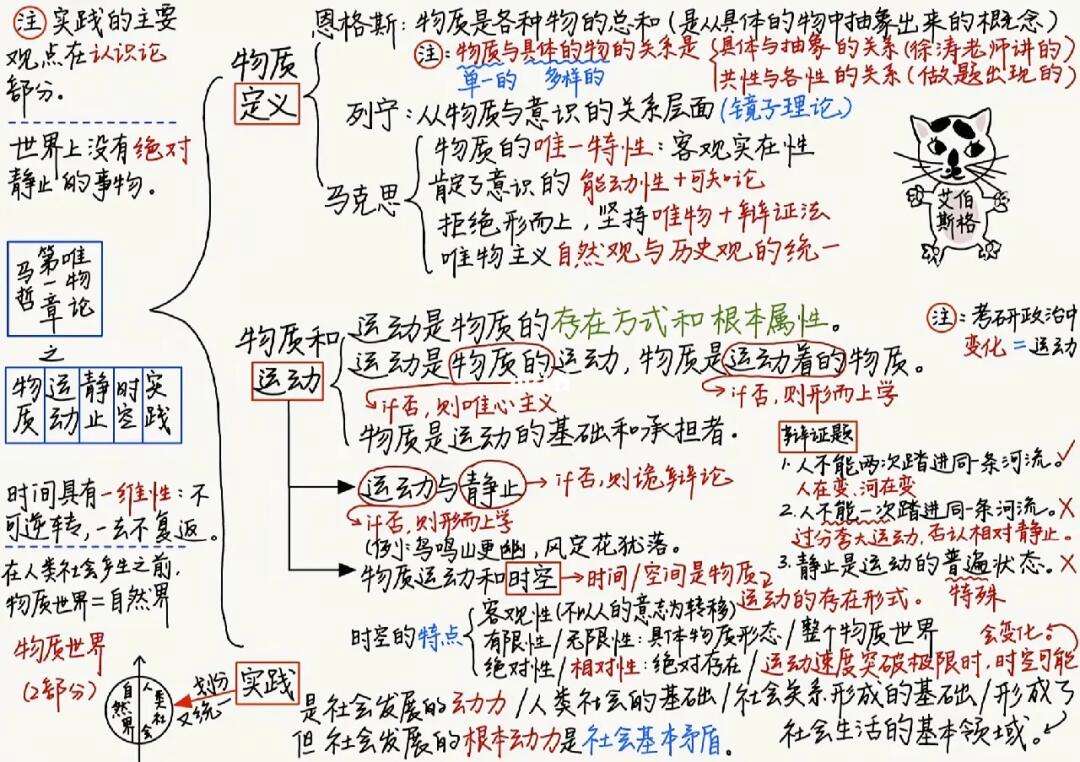 注 实践的主要
观点在认识论
部分。
世界上没有绝对
静止的事物。
马哲
第一章
唯物论
之
物质 运动 静止 时空 实践
时间具有一维性：不
可逆转，一去不复返。
在人类社会产生之前，
物质世界=自然界
物质世界
(2部分)
自然界 人类社会
划分
又统一
物质
定义
恩格斯：物质是各种物的总和(是从具体的物中抽象出来的概念)
注：物质与具体的物的关系是
单一的 多样的
具体与抽象的关系(徐涛老师讲的)
共性与各性的关系(做题出现的)
列宁：从物质与意识的关系层面(镜子理论)
马克思
物质的唯一特性：客观实在性
肯定了意识的能动性+可知论
拒绝形而上，坚持唯物+辩证法
唯物主义自然观与历史观的统一
艾伯
斯格
物质和
运动
运动是物质的存在方式和根本属性。
运动是物质的运动，物质是运动着的物质。
if否，则唯心主义
if否，则形而上学
物质是运动的基础和承担者。
注：考研政治中
变化=运动
运动与静止→if否，则诡辩论
if否，则形而上学
(例：鸟鸣山更幽，风定花犹落。
物质运动和时空→时间/空间是物质
运动的存在形式。
辩证题
1.人不能两次踏进同一条河流。✓
人在变、河在变
2.人不能一次踏进同一条河流。×
过分夸大运动，否认相对静止。
3.静止是运动的普遍状态。×
特殊
时空的特点
客观性(不以人的意志为转移)
有限性/无限性：具体物质形态/整个物质世界
绝对性/相对性：绝对存在/运动速度突破极限时，时空可能
会变化。
实践
是社会发展的动力/人类社会的基础/社会关系形成的基础/形成了
社会生活的基本领域。
但社会发展的根本动力是社会基本矛盾。